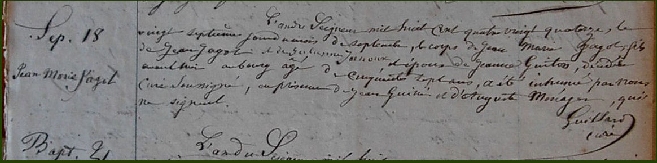 Sep. 18
Jean Marie Pagot
L'an du Seigneur mil huit cent quatre vingt quatorze, le
vingt septième jour du mois de Septembre, le corps de Jean Marie Pagot, fils
de Jean Pagot et de Janvoux et époux de Jeanne Guitton, décédé
avant hier au bourg âgé de cinquante sept ans, a été inhumé par nous
Curé soussigné, en présence de Jean Guitté et d'Auguste Ménager, qui
ne signent.
Guillard
curé
Bapt. 21
L'an du Seigneur mil huit